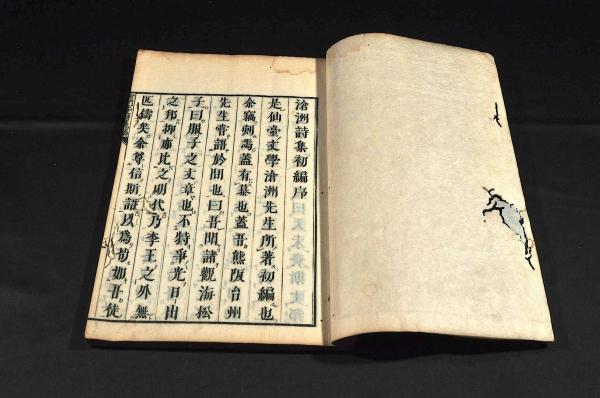 滄洲詩集初編序
是仙臺文學滄洲先生所著初編也
余竊剡焉蓋有慕也蓋吾熊阪台州
先生嘗語於間也曰吾聞諸觀海松
子曰服子之文章也不特爭光日出
之邦抑亦比之明代乃李王之外無
匹儔矣余尊信斯語以爲苟如吾徒